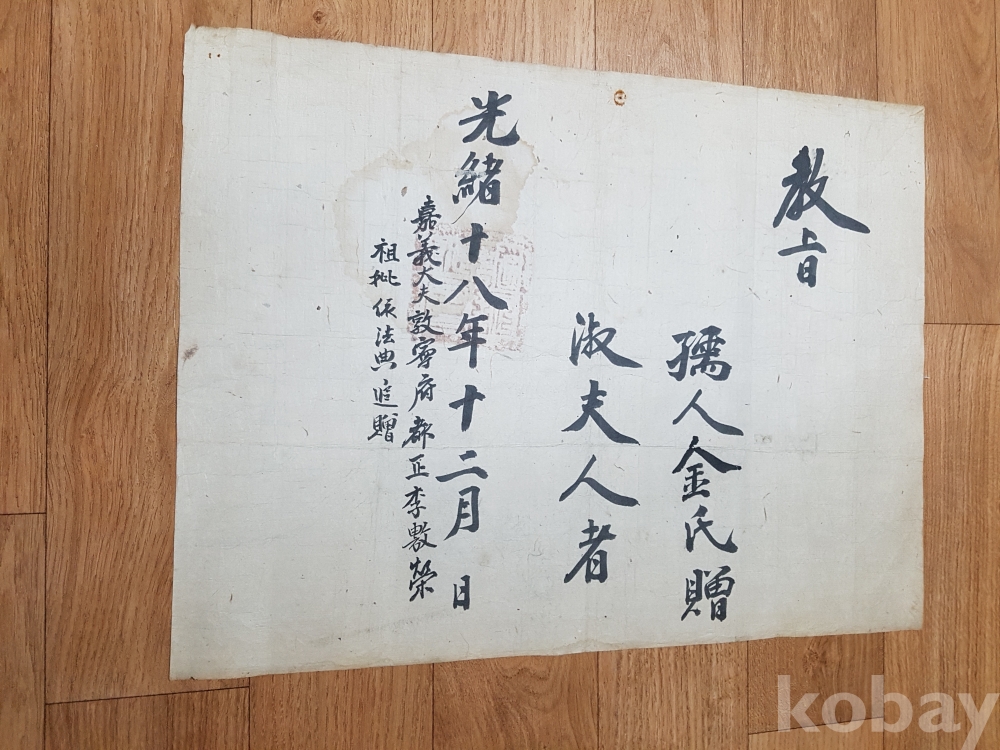 教旨
孺人金氏贈
淑夫人者
光緖十八年十二月 日
嘉義大夫敦寧府都正李敷榮
祖妣依法典追贈
kobay